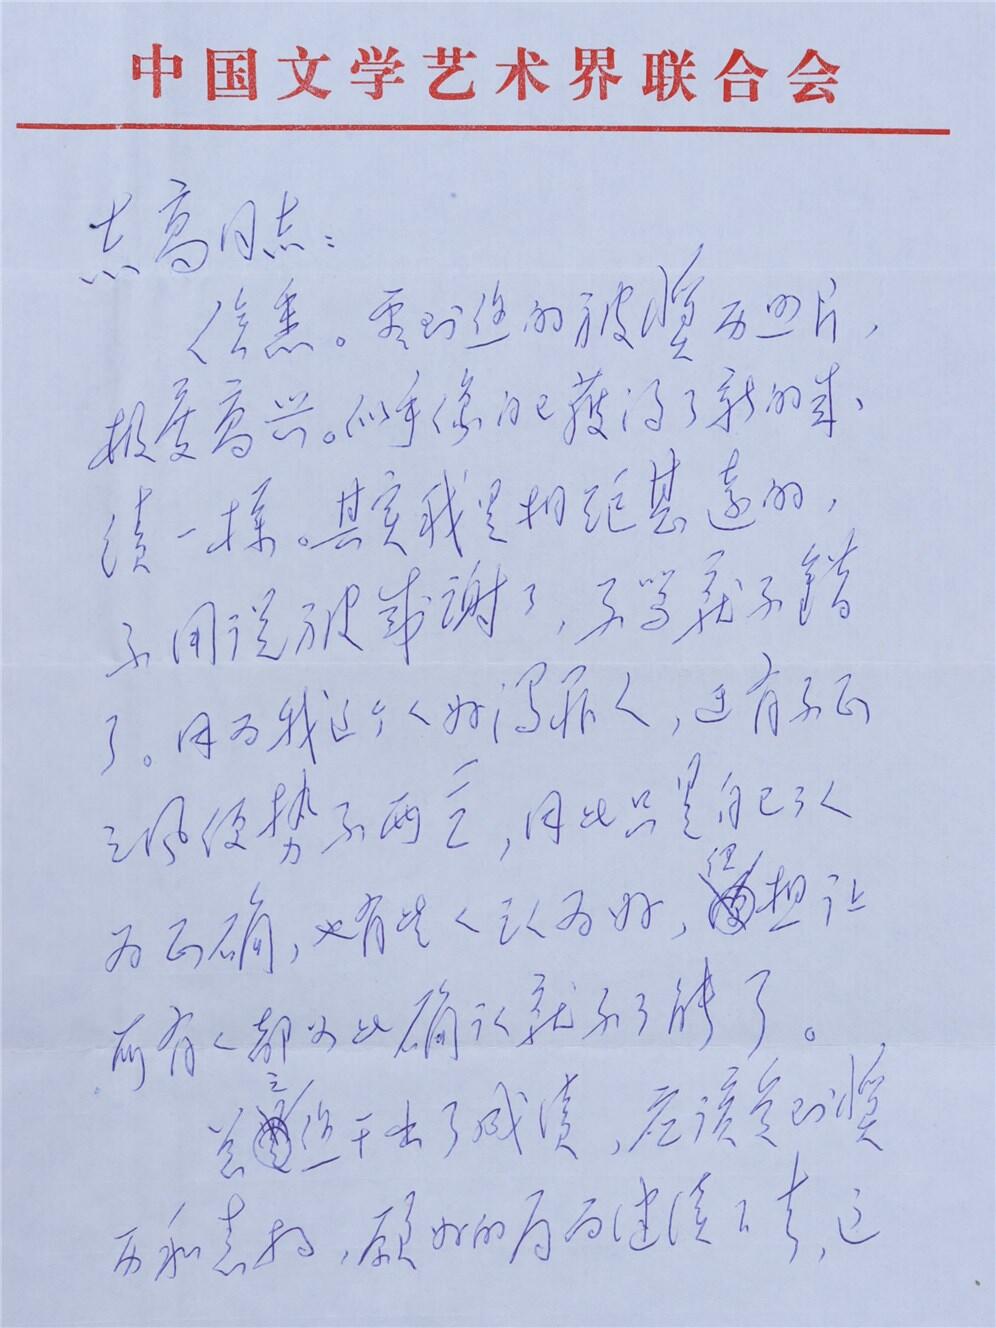 中国文学艺术界联合会
志高同志：
信悉。看到您的被奖励照片，
极度高兴。似乎像自己获得了新的成
绩一样。其实我是相距甚远的，
不用说被感谢了，不骂就不错
了。因为我这个人好得罪人，还有不正
之风便势不两立，因此只是自己认
为正确，也有些人认为好，但想让
所有人都如此确认就不可能了。
总之您干出了成绩，应该受到奖
励和支持，愿好的局面继续下去，这